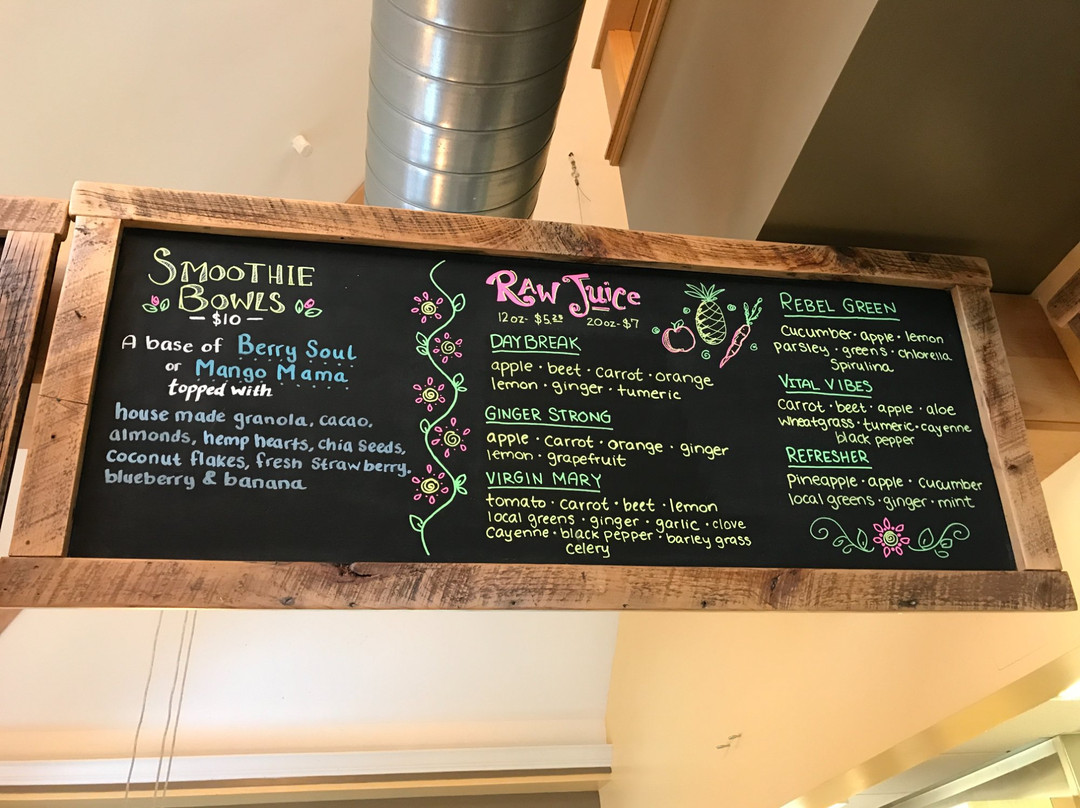 SMOOTHIE
BOWLS
- $10 -
A base of Berry Soul
or Mango Mama
topped with
house made granola, cacao,
almonds, hemp hearts, chia seeds,
coconut flakes, fresh strawberry.
blueberry & banana
RAW JUICE
12oz- $5.25 20oz- $7
DAYBREAK
apple · beet · carrot · orange
lemon · ginger · tumeric
GINGER STRONG
apple · carrot · orange · ginger
lemon · grapefruit
VIRGIN MARY
tomato · carrot · beet · lemon
local greens · ginger · garlic · clove
Cayenne · black pepper · barley grass
celery
REBEL GREEN
Cucumber · apple · lemon
parsley · greens · chlorella
Spirulina
VITAL VIBES
carrot · beet · apple · aloe
wheatgrass · tumeric · cayenne
black pepper
REFRESHER
Pineapple · apple · cucumber
local greens · ginger · mint